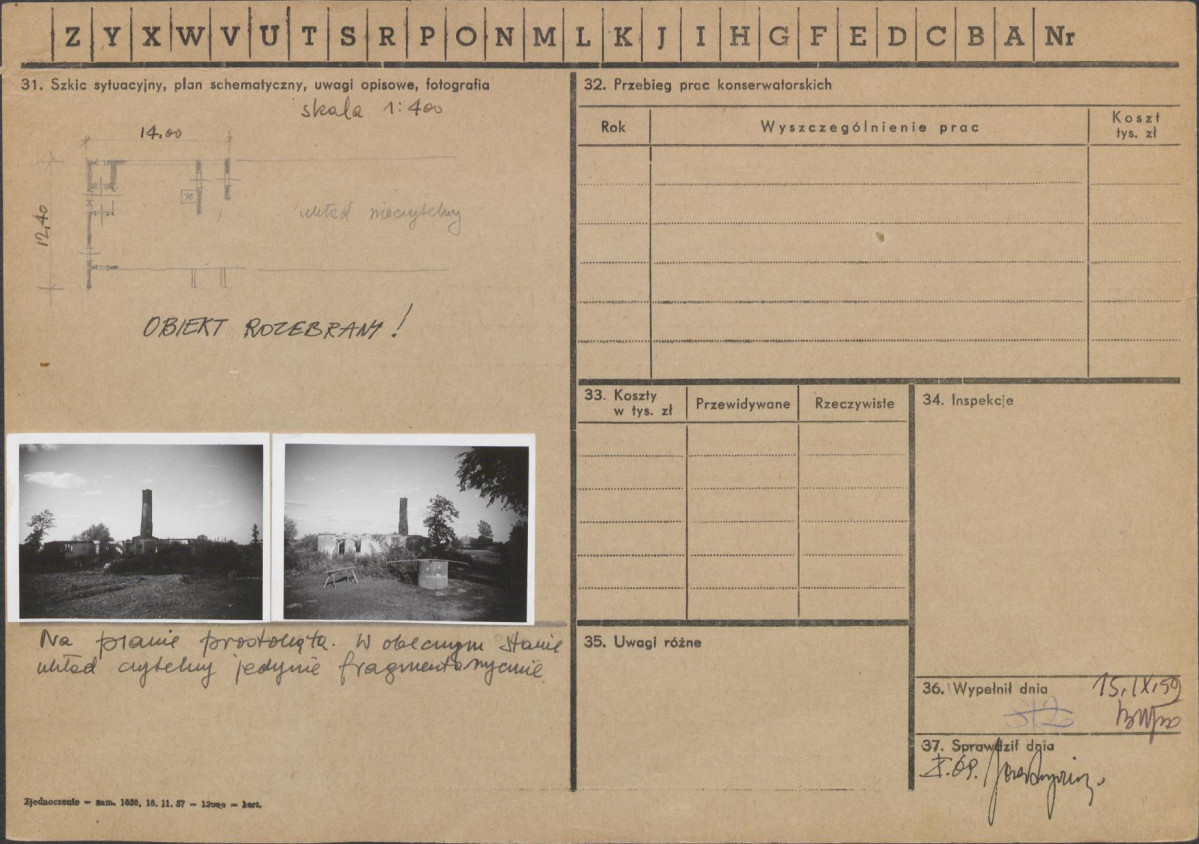 Z Y X W V U T S R P O N M L K J I H G F E D C B A Nr
31. Szkic sytuacyjny, plan schematyczny, uwagi opisowe, fotografia
skala 1:400
14,00
12,40
układ nieczytelny
OBIEKT ROZEBRANY!
Na planie prostokąta. W obecnym stanie
układ czytelny jedynie fragmentarycznie.
Zjednoczenie — zam. 1656, 16. 11. 57 — — kart.
32. Przebieg prac konserwatorskich
Rok Wyszczególnienie prac Koszt tys. zł
33. Koszty w tys. zł Przewidywane Rzeczywiste
34. Inspekcje
35. Uwagi różne
36. Wypełnił dnia 15.IX.59
37. Sprawdził dnia
X.69.